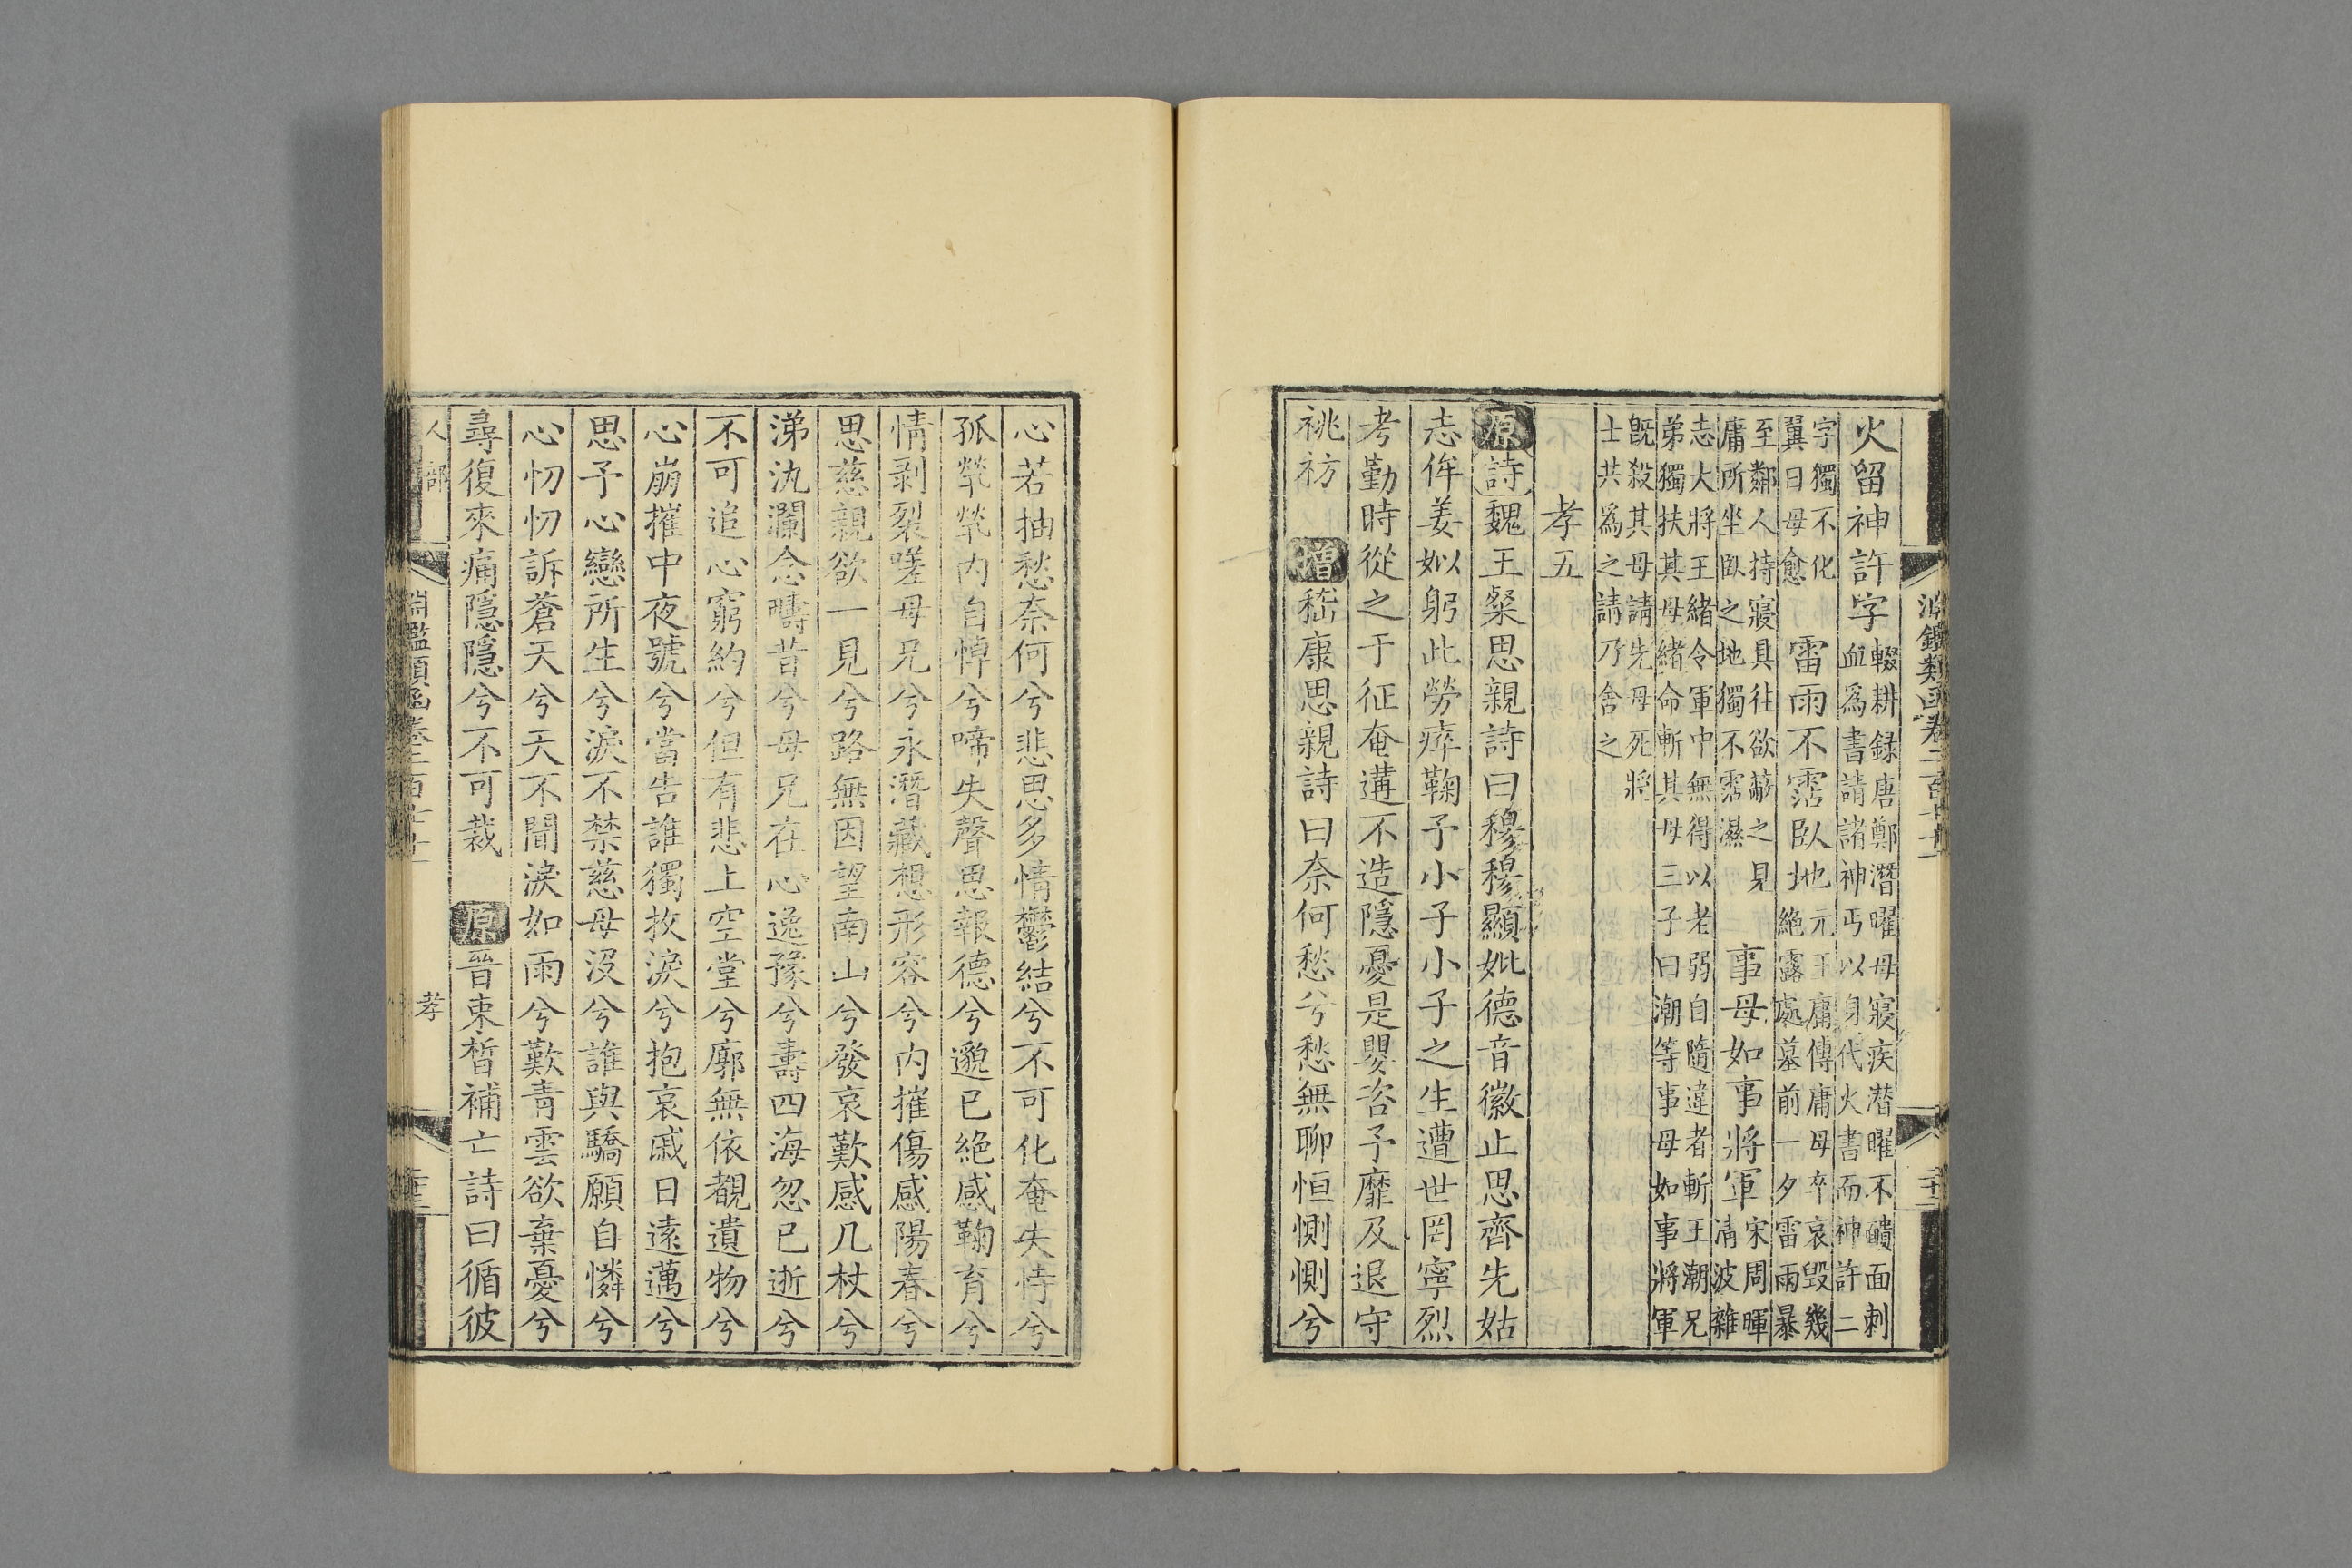 火留神許字輟耕録唐鄭潛曜母寢疾潛曜不靧面刺血爲書請諸神丐以身代火書而神許二
字獨不化翼日母愈雷雨不霑臥地元王庸傳庸母卒哀毁幾絶露處墓前一夕雷雨暴
至鄰人持寢具往欲蔽之見庸所坐臥之地獨不霑濕事母如事將軍宋周暉清波雜
志大將王緒令軍中無得以老弱自隨違者斬王潮兄弟獨扶其母緒命斬其母三子曰潮等事母如事將軍
既殺其母請先母死將士共爲之請乃舍之
孝五
原詩魏王粲思親詩曰穆穆顯妣德音徽止思齊先姑
志侔姜姒躬此勞瘁鞠予小子小子之生遭世罔寧烈
考勤時從之于征奄遘不造隱憂是嬰咨予靡及退守
祧祊 增嵇康思親詩曰奈何愁兮愁無聊恒惻惻兮
淵鑑類函卷二百七十一
心若抽愁奈何兮悲思多情鬱結兮不可化奄失恃兮
孤煢煢内自悼兮啼失聲思報德兮邈已絶感鞠育兮
情剥裂嗟母兄兮永潛藏想形容兮内摧傷感陽春兮
思慈親欲一見兮路無因望南山兮發哀歎感几杖兮
涕汍瀾念疇昔兮母兄在心逸豫兮壽四海忽已逝兮
不可追心窮約兮但有悲上空堂兮廓無依覩遺物兮
心崩摧中夜號兮當告誰獨抆淚兮抱哀戚日遠邁兮
思予心戀所生兮淚不禁慈母沒兮誰與驕願自憐兮
心忉忉訴蒼天兮天不聞淚如雨兮歎青雲欲棄憂兮
尋復來痛隱隱兮不可裁 原晉束晳補亡詩曰循彼
人部 淵鑑類函卷二百七十一 孝